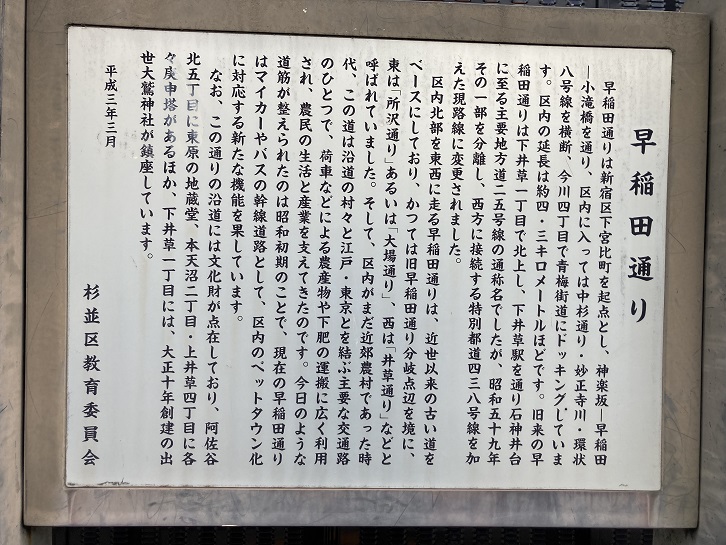 早稲田通り
早稲田通りは新宿区下宮比町を起点とし、神楽坂―早稲田
―小滝橋を通り、区内に入っては中杉通り・妙正寺川・環状
八号線を横断、今川四丁目で青梅街道にドッキングしていま
す。区内の延長は約四・三キロメートルほどです。旧来の早
稲田通りは下井草一丁目で北上し、下井草駅を通り石神井台
に至る主要地方道二五号線の通称名でしたが、昭和五十九年
その一部を分離し、西方に接続する特別都道四三八号線を加
えた現路線に変更されました。
区内北部を東西に走る早稲田通りは、近世以来の古い道を
ベースにしており、かつては旧早稲田通り分岐点辺を境に、
東は「所沢通り」あるいは「大場通り」、西は「井草通り」などと
呼ばれていました。そして、区内がまだ近郊農村であった時
代、この道は沿道の村々と江戸・東京とを結ぶ主要な交通路
のひとつで、荷車などによる農産物や下肥の運搬に広く利用
され、農民の生活と産業を支えてきたのです。今日のような
道筋が整えられたのは昭和初期のことで、現在の早稲田通り
はマイカーやバスの幹線道路として、区内のベットタウン化
に対応する新たな機能を果しています。
なお、この通りの沿道には文化財が点在しており、阿佐谷
北五丁目に東原の地蔵堂、本天沼二丁目・上井草四丁目に各
々庚申塔があるほか、下井草一丁目には、大正十年創建の出
世大鷲神社が鎮座しています。
平成三年三月
杉並区教育委員会